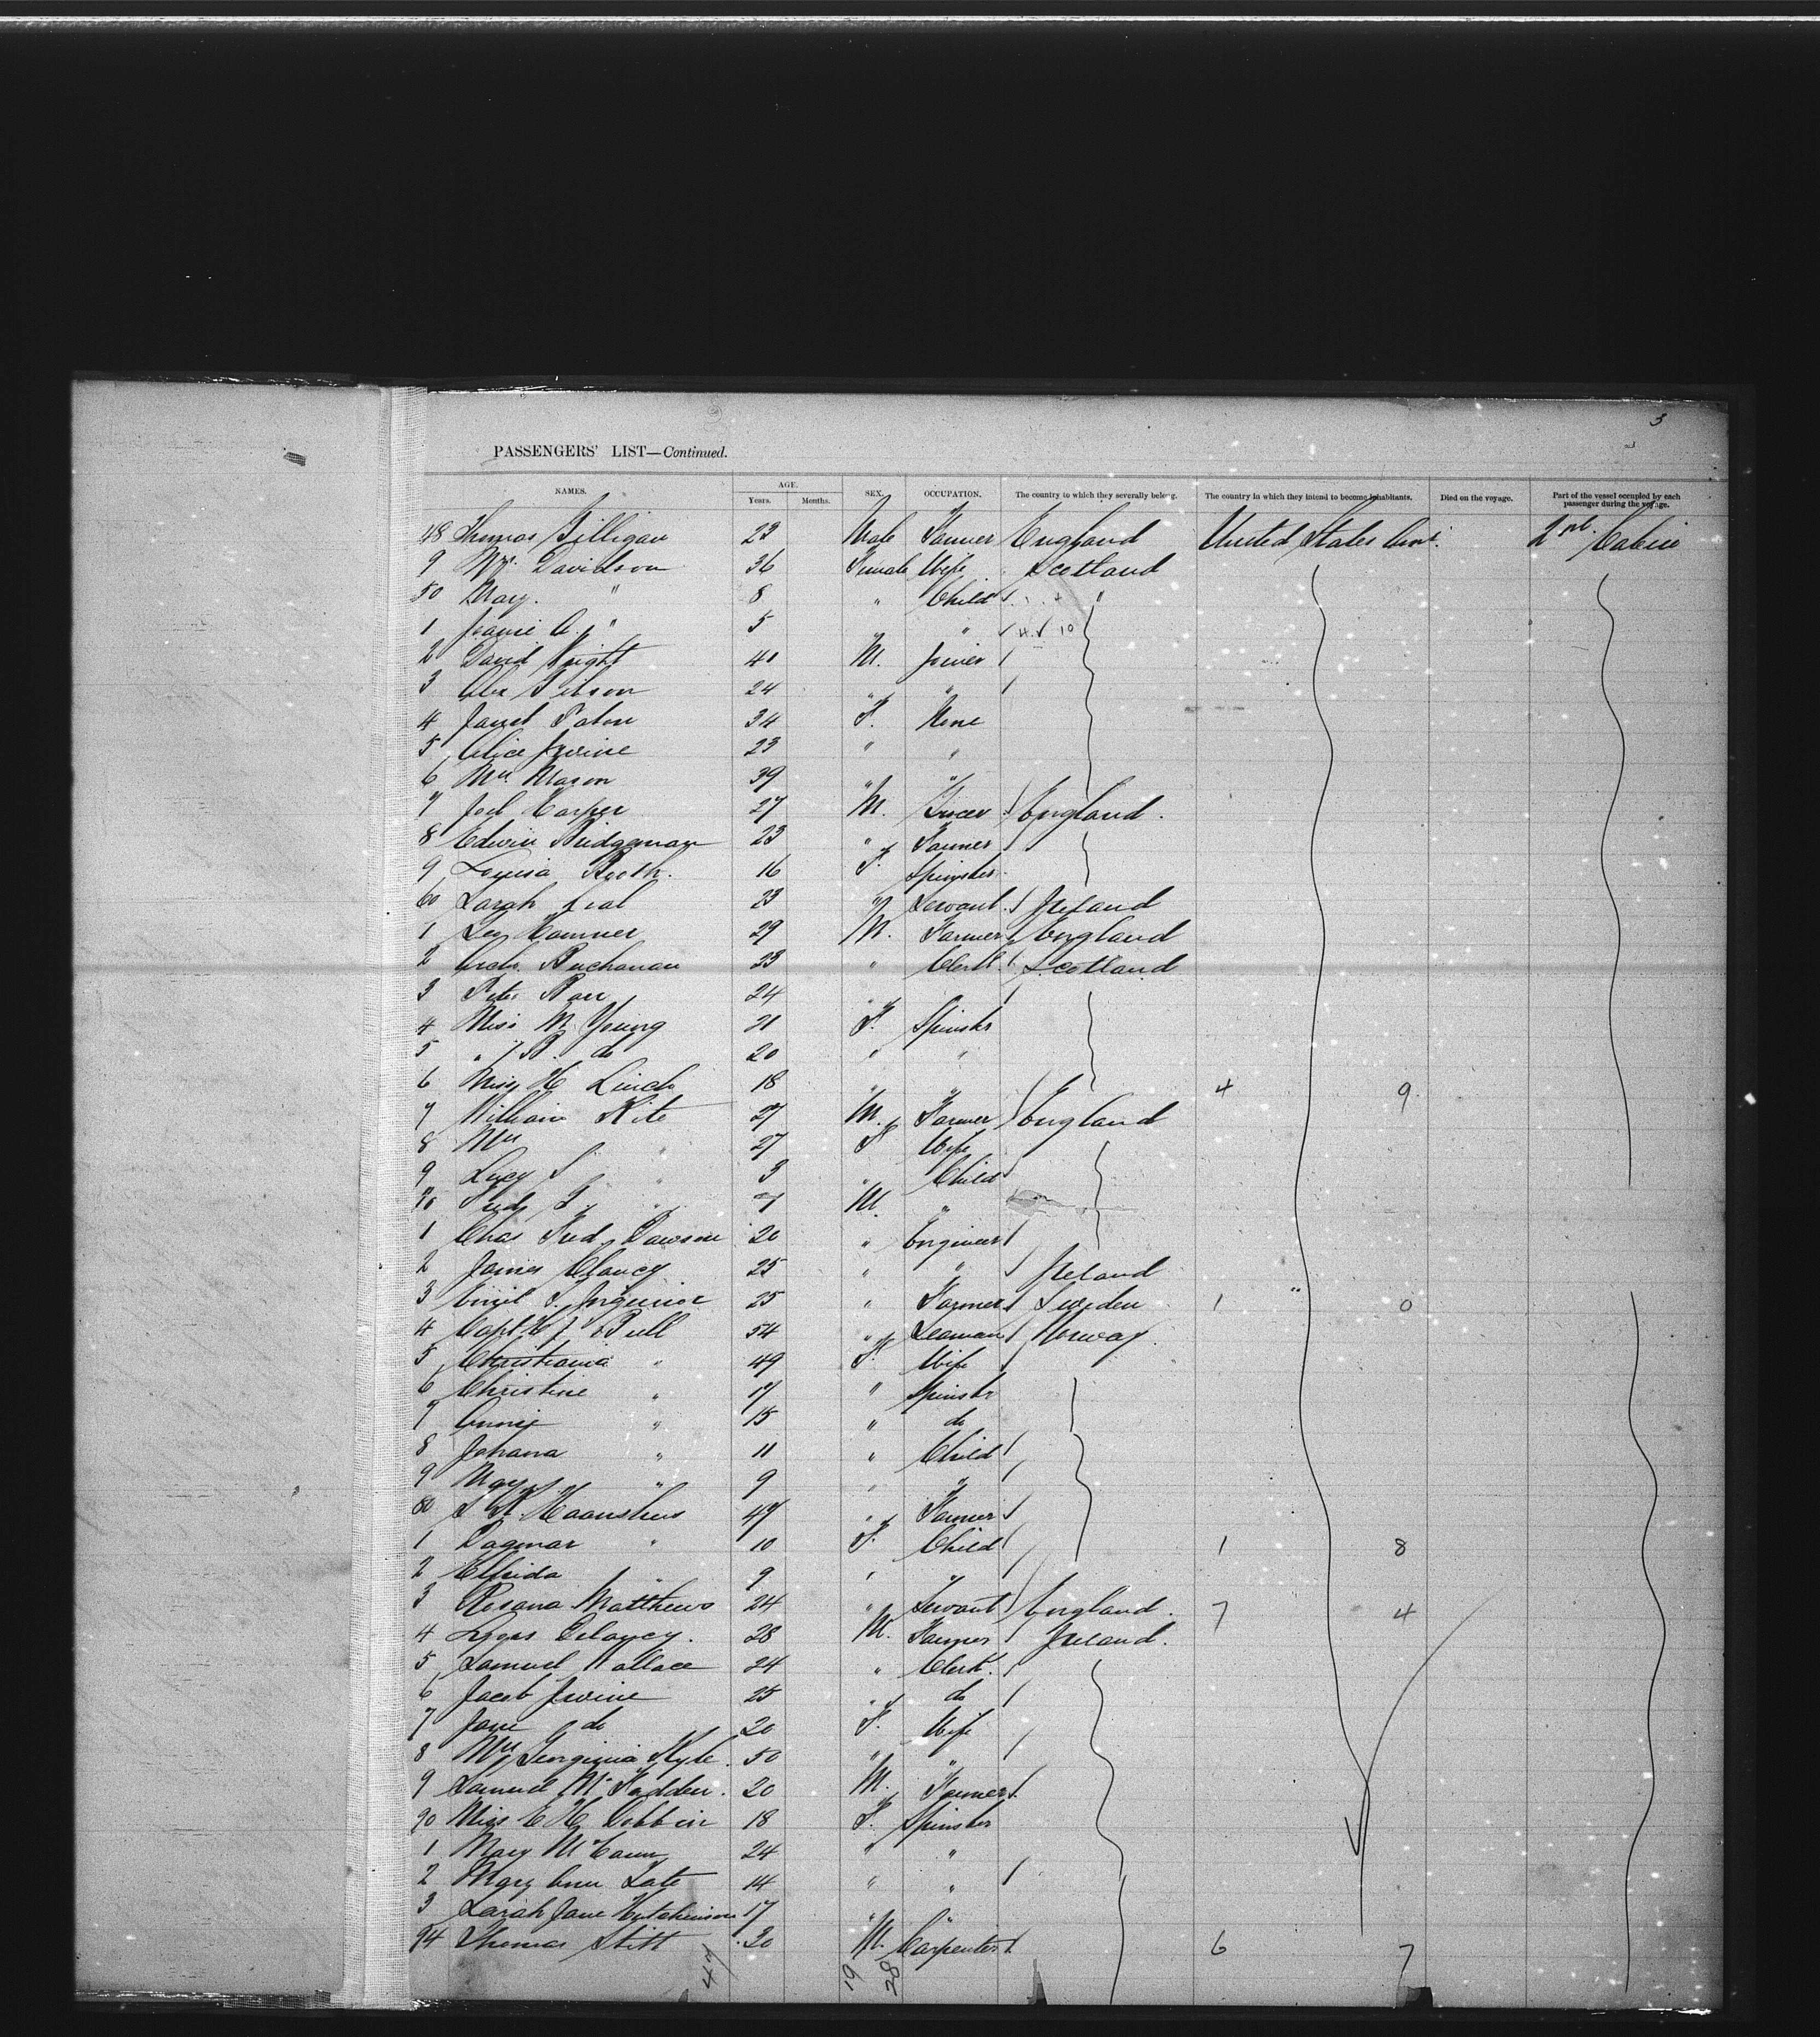 3
PASSENGERS' LIST—Continued.
NAMES. AGE. Years. Months. SEX. OCCUPATION. The country to which they severally belong. The country in which they intend to become inhabitants. Died on the voyage. Part of the vessel occupied by each passenger during the voyage.
48 Thomas Gilligan 23 Male Farmer England United States 2nd Cabin
9 Mrs. Davidson 36 Female Wife Scotland
50 Mary. " 8 " Child "
1 Jeanie A. " 5 "
2 David Wright 41 M. Joiner
3 Alex Gibson 24 " "
4 Janet Paton 34 F. None
5 Alice Irvine 23 " "
6 Mrs Mason 39 " "
7 Joel Harper 27 M. Grocer England.
8 Edwin Bridgeman 23 " Farmer
9 Louisa Booth. 16 F. Spinster
60 Sarah 23 " Servant Ireland
1 29 M. Farmer England
2 Archd. Buchanan 23 " Clerk Scotland
3 Peter Barr 24 "
4 Miss M. Young 21 F. Spinster
5 " B. do 20 " "
6 Miss H Linch 18 " " 4 9
7 William Kite 27 M. Farmer England
8 Mrs " 27 F Wife
9 Lucy S " 3 " Child
70 Fredk G. " M. "
1 Chas Fred. Dawson 20 " Engineer
2 James Clancy 25 " " Ireland
3 25 " Farmer Sweden 1 0
4 Capt H J Bull 54 " Seaman Norway
5 Christiania " 49 F. Wife
6 Christine " 17 " Spinster
7 Annie " 15 " do
8 Johana " 11 " Child
9 May " 9 " "
80 47 " Farmer
1 Dagmar " 10 F. Child 1 8
2 Elfrida " 9 "
3 Rosana Matthews 24 " Servant England. 7 4
4 Delancy. 28 M. Farmer Ireland.
5 Samuel Wallace 24 " Clerk.
6 Jacob Irvine 25 " do
7 Jane do 20 F. Wife
8 Mrs Georginia Kyle. 50 " "
9 Samuel McFadden. 20 M. Farmer
90 Miss E H Dobbin 18 F. Spinster
1 Mary McCann 24 " "
2 Mary Ann Tate 14 " "
3 Sarah Jane Hutchinson 17 " "
94 Thomas Stitt 20 M. Carpenter 6 7
47 19 28